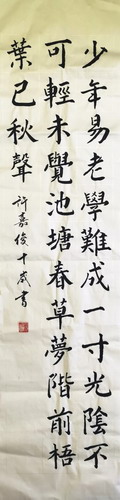 少年易老學難成一寸光陰不
可輕未覺池塘春草夢階前梧
葉已秋聲
許嘉俊十歲書